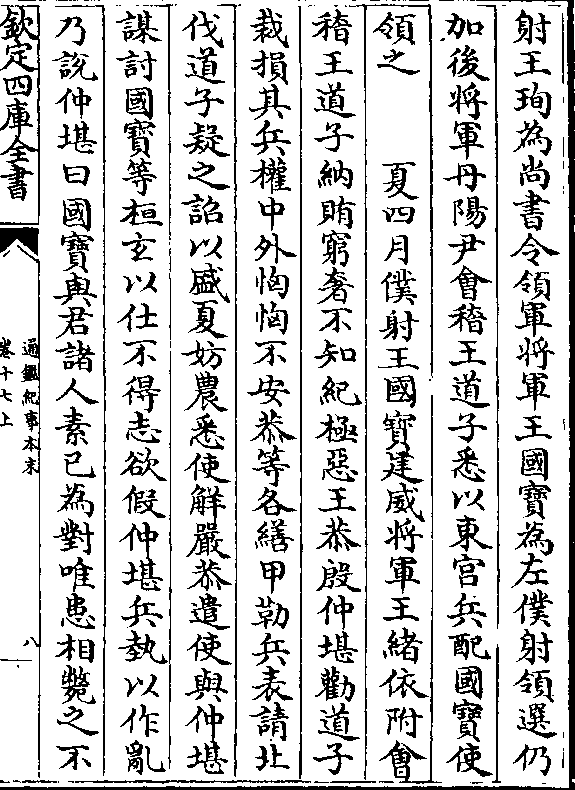 射王珣為尚書令領軍將軍王國寶為左僕射領選仍
加後將軍丹陽尹㑹稽王道子悉以東宮兵配國寶使
領之　　夏四月僕射王國寶建威將軍王緒依附㑹
稽王道子納賄窮奢不知紀極惡王恭殷仲堪勸道子
裁損其兵權中外恟恟不安恭等各繕甲勒兵表請北
伐道子疑之詔以盛夏妨農悉使解嚴恭遣使與仲堪
謀討國寶等桓玄以仕不得志欲假仲堪兵埶以作亂
乃說仲堪曰國寶與君諸人素已為對唯患相斃之不
欽定四庫全書
通鑑紀事本末
卷十七上
八